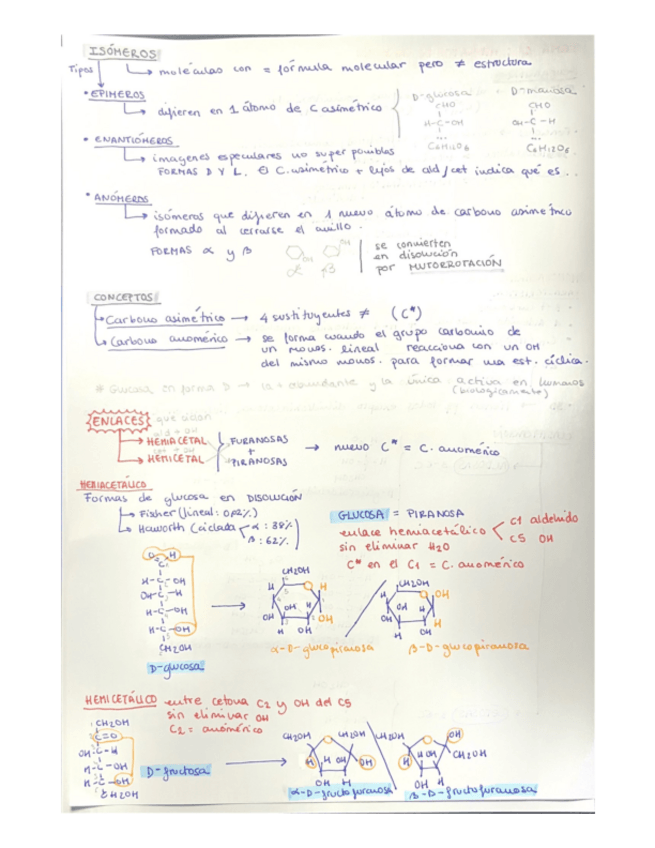 ISÓMEROS
Tipos
moléculas con = fórmula molecular pero ≠ estructura
• EPÍMEROS
difieren en 1 átomo de C asimétrico
D-glucosa
D-manosa
CHO
CHO
H-C-OH
OH-C-H
...
...
C6H12O6
C6H12O6
• ENANTIÓMEROS
imagenes especulares no superponibles
FORMAS D Y L. C. asimétrico + lejos de ald/cet indica qué es..
• ANÓMEROS
isómeros que difieren en 1 nuevo átomo de carbono asimétrico
formado al cerrarse el anillo.
FORMAS α y β
OH
OH
α
β
se convierten
en disolución
por MUTORROTACIÓN
CONCEPTOS
Carbono asimétrico → 4 sustituyentes ≠ (C*)
Carbono anomérico → se forma cuando el grupo carbonilo de
un monos. lineal reacciona con un OH
del mismo monos. para formar una est. cíclica.
# Glucosa en forma D → la + abundante y la única activa en humanos
(biológicamente)
ENLACES que sixon
ald + OH
HEMIACETAL
HEMICETAL
FURANOSAS
+
PIRANOSAS
→ nuevo C* = C. anomérico
HEMIACETÁLICO
Formas de glucosa en DISOLUCIÓN
Fisher (lineal: 0,02%)
Haworth (ciclada
α: 38%
β: 62%
GLUCOSA = PIRANOSA
enlace hemiacetálico
C1 aldehído
C5 OH
sin eliminar H2O
C* en el C1 = C. anomérico
O H
C
H-C-OH
OH-C-H
H-C-OH
H-C-OH
CH2OH
D-glucosa
CH2OH
H O H
OH H
OH OH
H OH
α-D-glucopiranosa
CH2OH
H O OH
OH H
OH H
H OH
β-D-glucopiranosa
HEMICETÁLICO entre cetona C2 y OH del C5
sin eliminar OH
C2 = anomérico
CH2OH
C=O
OH-C-H
H-C-OH
H-C-OH
CH2OH
D-fructosa
CH2OH O CH2OH
H H OH OH
OH H
α-D-fructofuranosa
CH2OH O OH
H H OH CH2OH
OH H
β-D-fructofuranosa